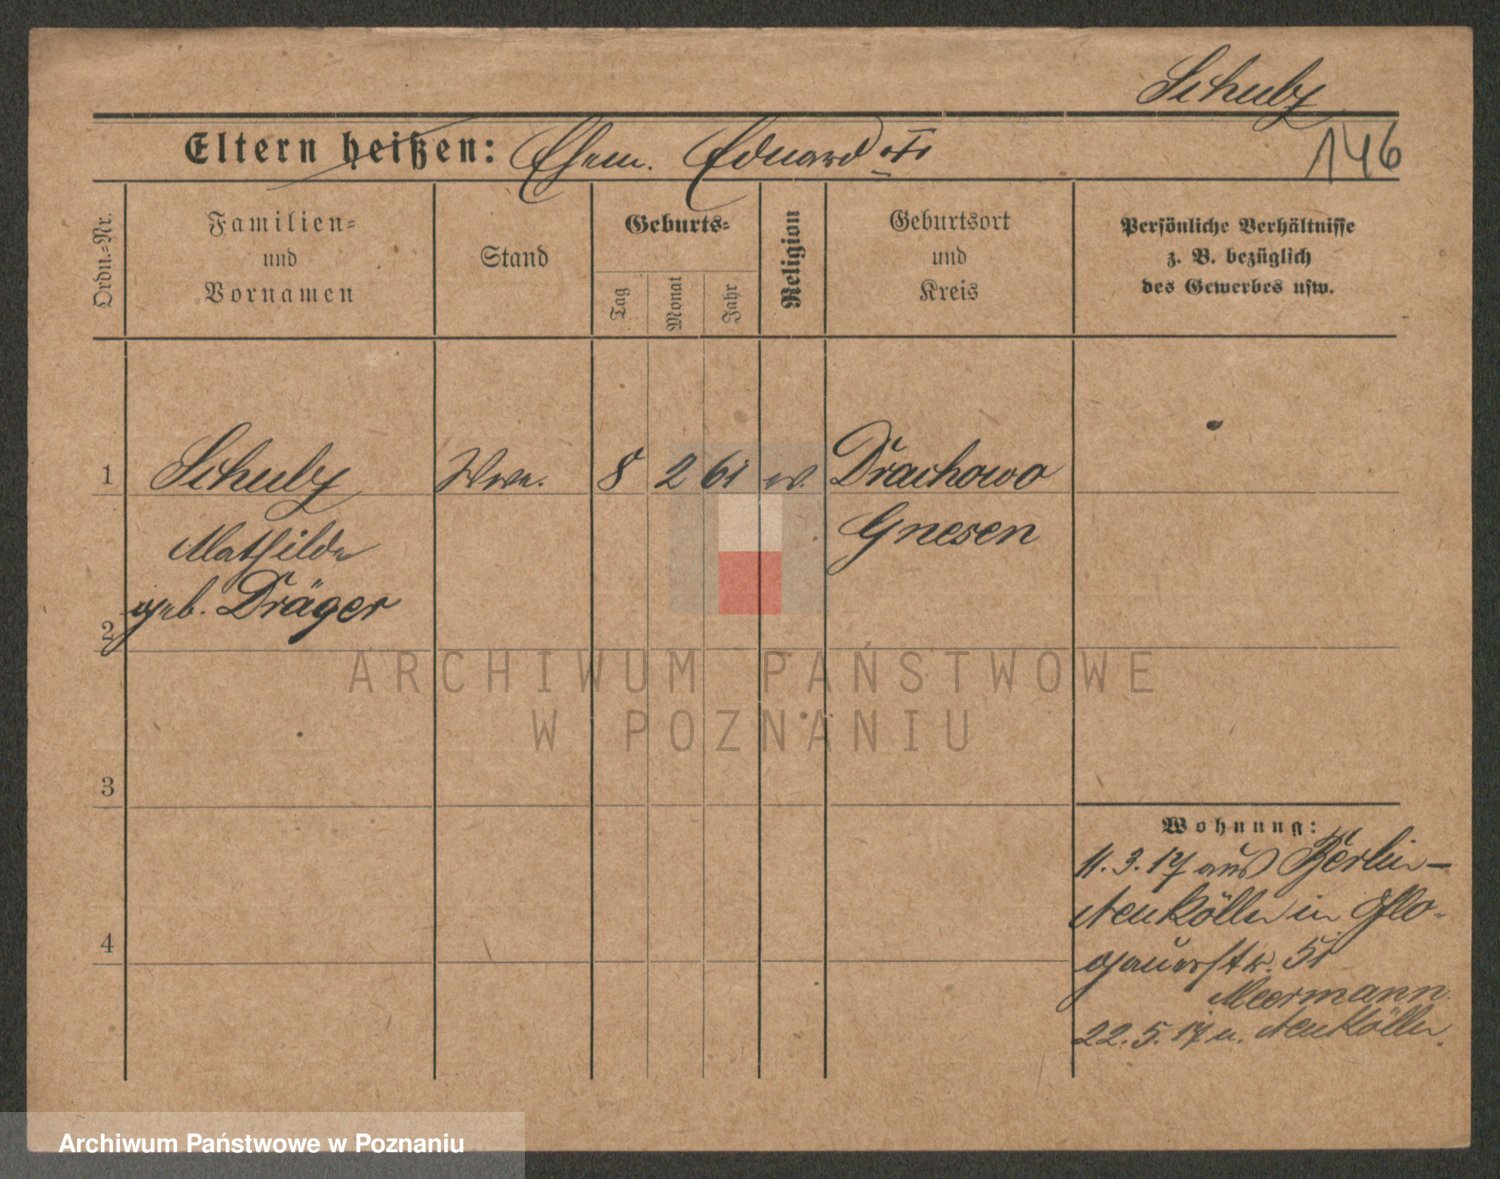 Schulz
Eltern heißen: Ehem. Eduard
146
Ordn.-Nr.
Familien-
und
Vornamen
Stand
Geburts-
Tag
Monat
Jahr
Religion
Geburtsort
und
Kreis
Persönliche Verhältnisse
z. B. bezüglich
des Gewerbes usw.
1 Schulz Wwe. 8 2 61 ev. Drachowo
Mathilde Gnesen
geb. Dräger
2
3
4
Wohnung:
11.3.17 aus Berlin-
Neukölln in Glo-
gauerstr. 51
Meermann
22.5.17 n. Neukölln.
ARCHIWUM PAŃSTWOWE
W POZNANIU
Archiwum Państwowe w Poznaniu